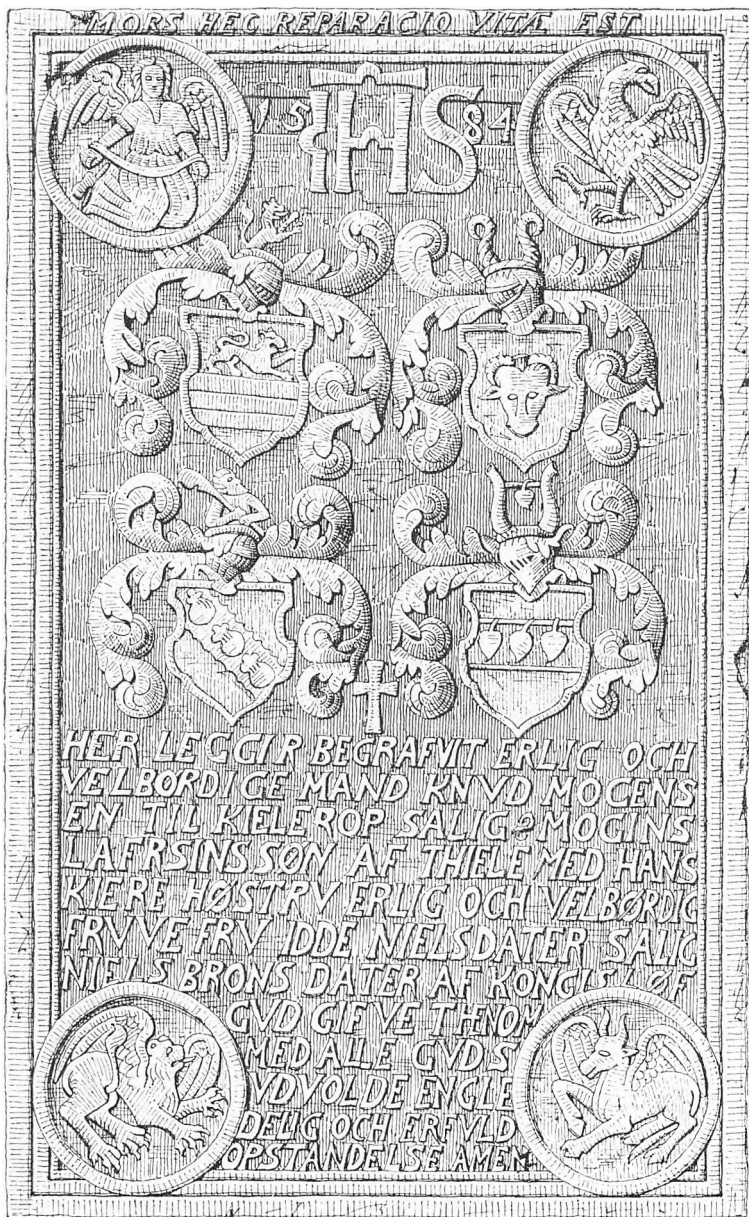 MORS HEC REPARACIO VITÆ EST
15 IHS 84
HER LEGGIR BEGRAFVIT ERLIG OCH
VELBØRDIGE MAND KNVD MOGENS
EN TIL KIELEROP SALIG MOGINS
LAFRSINS SØN AF THIELE MED HANS
KIERE HØSTRV ERLIG OCH VELBØRDIG
FRVVE FRV IDDE NIELSDATER SALIG
NIELS BRONS DATER AF KONGISLØF
GVD GIFVE THNOM
MED ALLE GVDS
VDVOLDE ENGLE
DELIG OCH ERFVLD
OPSTANDELSE AMEN